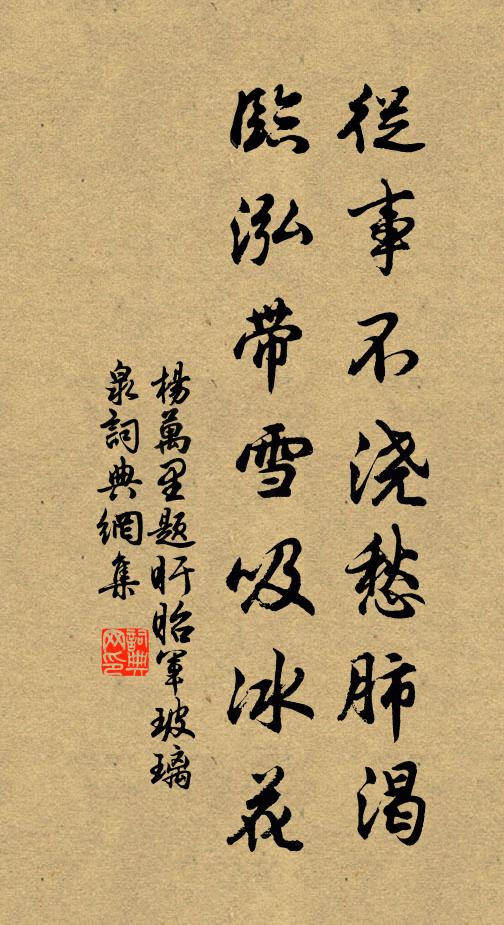 從事不浇愁肺渴
臨泓帶雪吸冰花
楊萬里題盱眙軍玻璃
泉詞典網集
詞典
网印